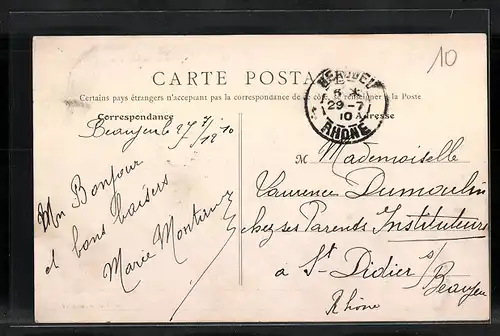 10
CARTE POSTALE
Certains pays étrangers n'acceptant pas la correspondance de ce côté, se renseigner à la Poste
BEAUJEU
5 *
29-7
10
RHONE
Correspondance
Adresse
Beaujeu le 27/7/1910
Un Bonjour
et bons baisers
Marie
M Mademoiselle
Laurence Dumoulin
chez ses Parents Instituteurs
à St Didier s/
Beaujeu
Rhône